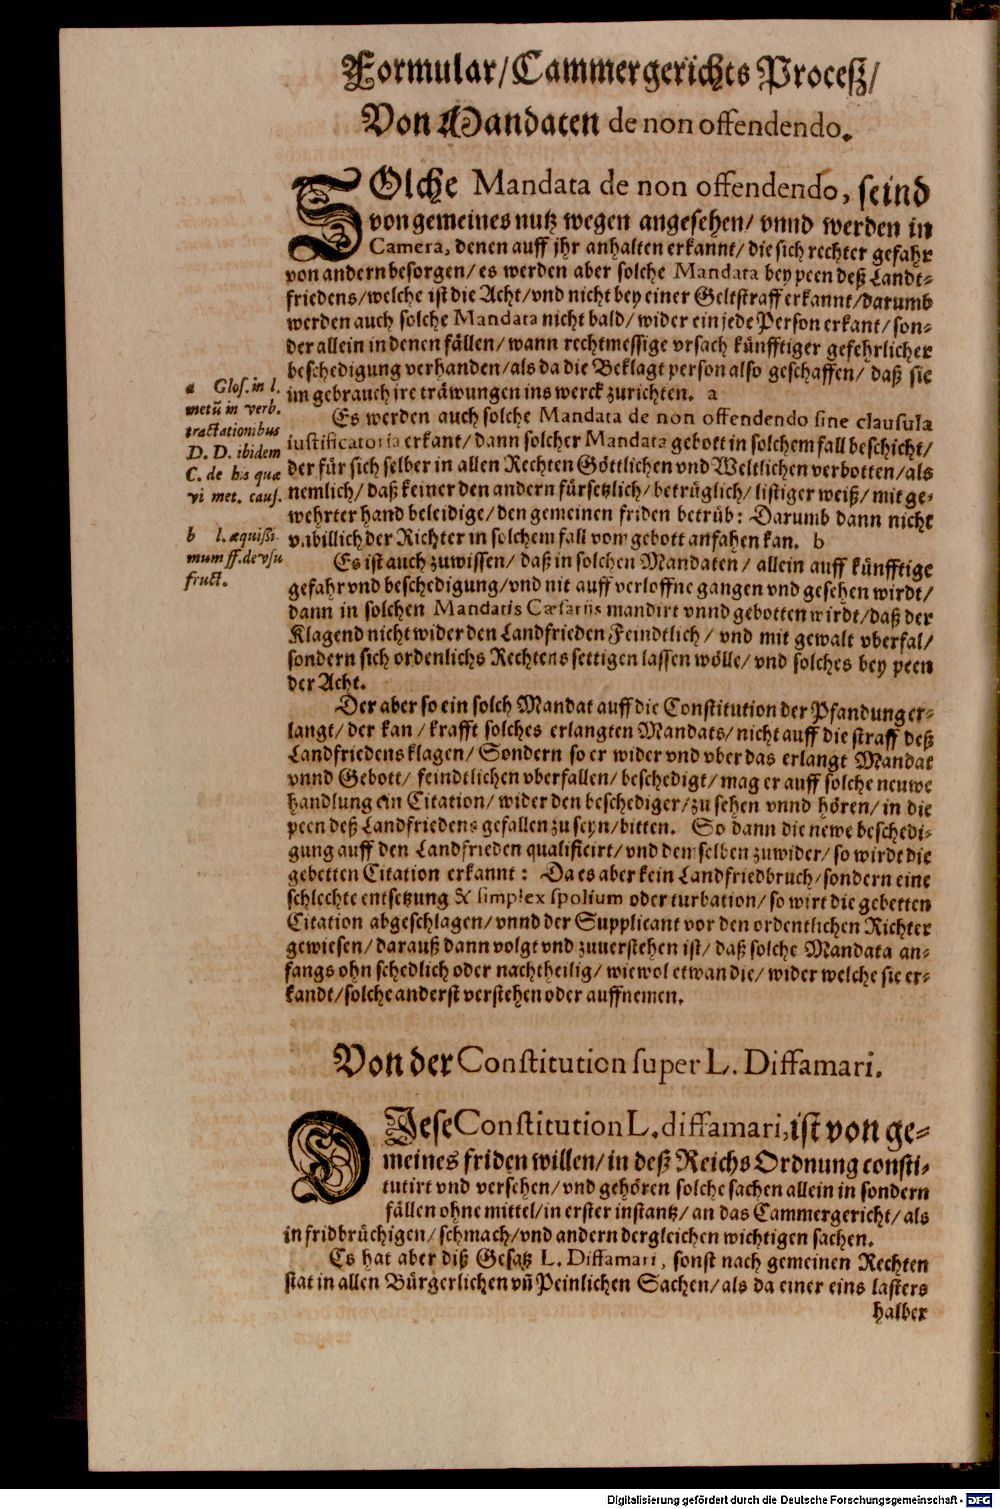 Formular/Cammergerichts Proceß/
Von Mandaten de non offendendo.
SOlche Mandata de non offendendo, seind
von gemeines nutz wegen angesehen/ vnnd werden in
Camera, denen auff jhr anhalten erkannt/ die sich rechter gefahr
von andern besorgen/ es werden aber solche Mandata bey peen deß Landt-
friedens/ welche ist die Acht/ vnd nicht bey einer Geltstraff erkannt/ darumb
werden auch solche Mandata nicht bald/ wider ein jede Person erkant/ son-
der allein in denen fällen/ wann rechtmessige vrsach künfftiger gefehrlicher
beschedigung verhanden/ als da die Beklagt person also geschaffen/ daß sie
im gebrauch jre träwungen ins werck zurichten. a
Es werden auch solche Mandata de non offendendo sine clausula
iustificatoria erkant/ dann solcher Mandata gebott in solchem fall beschicht/
der für sich selber in allen Rechten Göttlichen vnd Weltlichen verbotten/ als
nemlich/ daß keiner den andern fürsetzlich/ betrüglich/ listiger weiß/ mit ge-
wehrter hand beleidige/ den gemeinen friden betrüb: Darumb dann nicht
vnbillich der Richter in solchem fall vom gebott anfahen kan. b
Es ist auch zuwissen/ daß in solchen Mandaten/ allein auff künfftige
gefahr vnd beschedigung/ vnd nit auff verloffne gangen vnd gesehen wirdt/
dann in solchen Mandatis Cæsariis mandirt vnnd gebotten wirdt/ daß der
Klagend nicht wider den Landfrieden Feindtlich/ vnd mit gewalt vberfal/
sondern sich ordenlichs Rechtens settigen lassen wölle/ vnd solches bey peen
der Acht.
Der aber so ein solch Mandat auff die Constitution der Pfandung er-
langt/ der kan/ krafft solches erlangten Mandats/ nicht auff die straff deß
Landfriedens klagen/ Sondern so er wider vnd vber das erlangt Mandat
vnnd Gebott/ feindtlichen vberfallen/ beschedigt/ mag er auff solche neuwe
handlung ein Citation/ wider den beschediger/ zu sehen vnnd hören/ in die
peen deß Landfriedens gefallen zu seyn/ bitten. So dann die newe beschedi-
gung auff den Landfrieden qualificirt/ vnd demselben zuwider/ so wirdt die
gebetten Citation erkannt: Da es aber kein Landfriedbruch/ sondern eine
schlechte entsetzung & simplex spolium oder turbation/ so wirt die gebetten
Citation abgeschlagen/ vnnd der Supplicant vor den ordentlichen Richter
gewiesen/ darauß dann volgt vnd zuuerstehen ist/ daß solche Mandata an-
fangs ohn schedlich oder nachtheilig/ wiewol etwan die/ wider welche sie er-
kandt/ solche anderst verstehen oder auffnemen.
a Glos. in l.
metū in verb.
tractationibus
D. D. ibidem
C. de his quæ
vi met. caus.
b l. æquissi-
mum ff. de vsu
fruct.
Von der Constitution super L. Diffamari.
DJese Constitution L. diffamari, ist von ge-
meines friden willen/ in deß Reichs Ordnung consti-
tutirt vnd versehen/ vnd gehören solche sachen allein in sondern
fällen ohne mittel/ in erster instantz/ an das Cammergericht/ als
in fridbrüchigen/ schmach/ vnd andern dergleichen wichtigen sachen.
Es hat aber diß Gesatz L. Diffamari, sonst nach gemeinen Rechten
stat in allen Bürgerlichen vñ Peinlichen Sachen/ als da einer eins lasters
halber
Digitalisierung gefördert durch die Deutsche Forschungsgemeinschaft - DFG